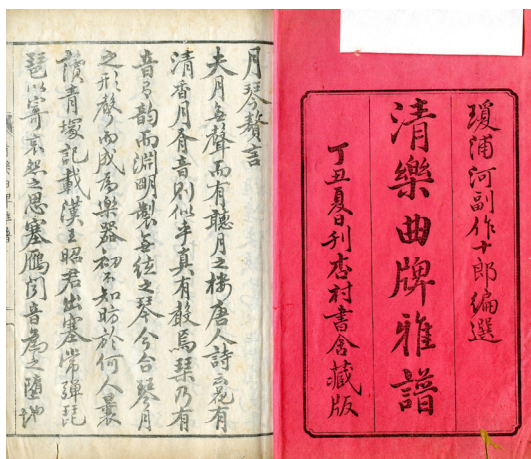 瓊浦河副作十郎編選
清樂曲牌雅譜
丁丑夏日刊杏村書舍藏版
月琴贅言
夫月無聲而有聽月之樓唐人詩云花有
清香月有音則似乎真有聲焉琴乃有
音有韵而淵明製無絃之琴今合琴月
之形聲而成為樂器初不知昉於何人曩
讀青塚記載漢王昭君出塞常彈琵
琶以寄哀怨之思塞鴈聞音為之墮地